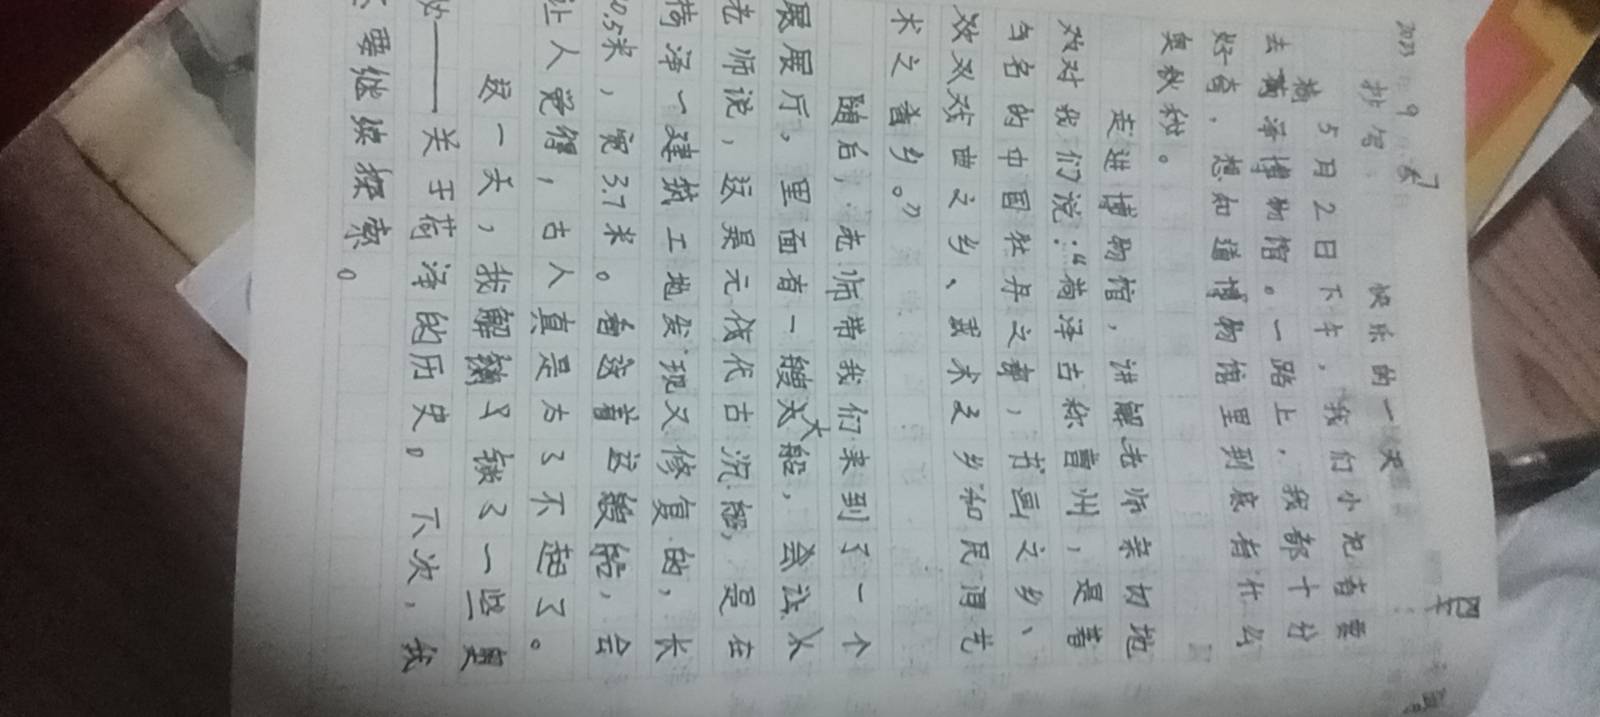 抄写
快乐的一天
5月2日下午，我们小记者要
去菏泽博物馆。一路上，我都十分
好奇，想知道博物馆里到底有什么
奥秘。
走进博物馆，讲解老师亲切地
对我们说：“菏泽古称曹州，是著
名的中国牡丹之都，书画之乡、
戏曲之乡、武术之乡和民间艺
术之乡。”
随后，老师带我们来到了一个
展厅，里面有一艘大船，
老师说，这是元代古沉船，是在
菏泽一建筑工地发现又修复的，长
0.5米，宽3.7米。看着这艘船，会
让人觉得，古人真是太了不起了。
这一天，我解锁了一些奥
妙——关于菏泽的历史。下次，我
要继续探索。